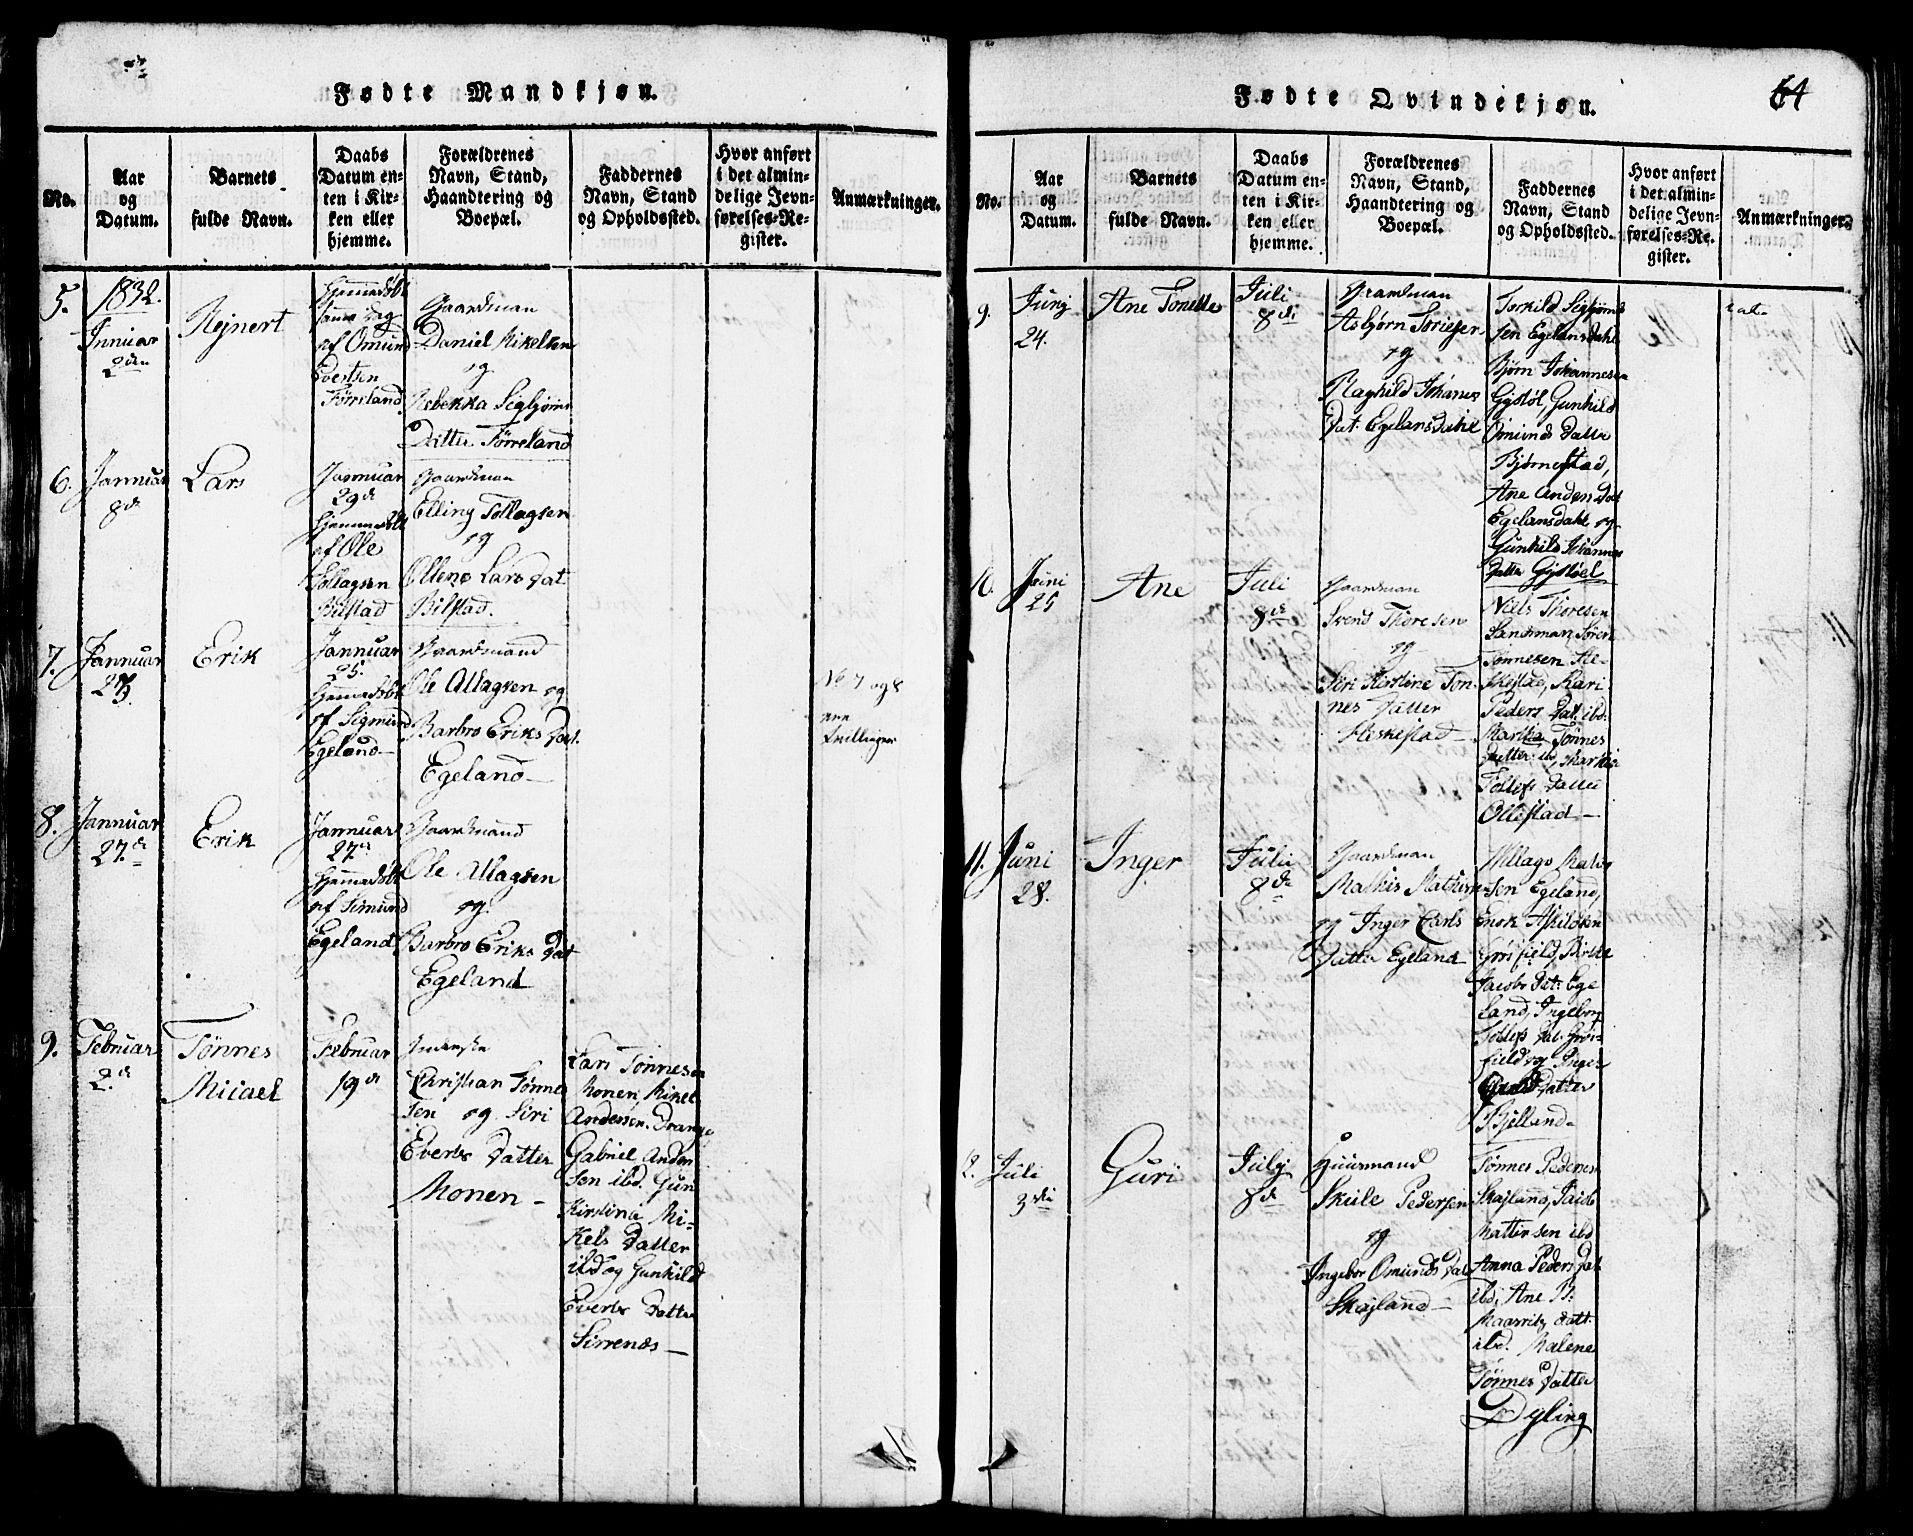 Fødte Mandkjøn.
No.
Aar
og
Datum.
Barnets
fulde Navn.
Daabs
Datum en-
ten i Kir-
ken eller
hjemme.
Forældrenes
Navn, Stand,
Haandtering og
Boepæl.
Faddernes
Navn, Stand
og Opholdssted.
Hvor anført
i det almin-
delige Jevn-
førelses-Re-
gister.
Anmærkninger.
5.
1832.
Januar
2den
Rejnert
Hjemmedøbt
samme dag
af Omund
Evertsen
Tørreland
Gaardman
Daniel Mikelsen
og
Rebekka Sigbjørns
Datter Tørreland
6.
Jannuar
8de
Lars
Jannuar
29de
Hjemmedøbt
af Ole
Tollagsen
Bilstad
Gaardman
Elling Tollagsen
og
Ollene Lars Dat
Bilstad.
7.
Jannuar
Erik
Jannuar
25.
Hjemmedøbt
af Sigmund
Egeland
Gaardmand
Ole Allagsen og
Barbro Eriks Dat.
Egeland
No 7 og 8
ere
Tvillinger
8.
Jannuar
27.de
Erik
Jannuar
27.de
Hjemmedøbt
af Simund
Egeland
Gaardmand
Ole Allagsen
og
Barbro Eriks Dat
Egeland
9.
Februar
2.de
Tønnes
Micael
Februar
19de
Inderste
Christian Tønne
sen og Siri
Everts Datter
Monen
Lars Tønnesen
Monen, Mikel
Andersen Drange
Gabriel Ander
sen ibd. Gun
Kirstine Mi-
kels Datter
ibd og Gunhild
Everts Datter
Sirrenæs
Fødte Qvindekjøn.
64
No.
Aar
og
Datum.
Barnets
fulde Navn.
Daabs
Datum en-
ten i Kir-
ken eller
hjemme.
Forældrenes
Navn, Stand,
Haandtering og
Boepæl.
Faddernes
Navn, Stand
og Opholdssted.
Hvor anført
i det almin-
delige Jevn-
førelses-Re-
gister.
Anmærkninger.
9.
Junj
24.
Ane Tonette
Juli
8de
Gaardman
Asbjørn
og
Raghild Johanes
Dat. Egelansdahl
Torkild Sigbjørn
sen Egelansdahl
Bjørn Johannesen
Gystøl, Gunhild
Omunds Datter
Bjørnestad,
Ane Anders Dat
Egelansdahl og
Gunhild Johannes
Datter Gystøel
10.
Juni
25
Ane
Juli
8de
Gaardman
Svend Thoresen
og
Siri Kirstine Tøn-
nes Datter
Heskestad
Niels Thoresen
Sandsmark, Søren
Tønnesen He-
skestad, Kari
Peders Dat. ibd.
Martha Tønnes
Datter ibd, Martha
Tollefs Datter
Ollestad
11.
Juni
28.
Inger
Juli
8de
Gaardman
Mathis
og Inger Carls
Datter Egeland
sen Egeland,
Enok Askildsen
Jacobs Dat. Ege
land, Ingeborg
Tollefs Dat.
field og Inger
Datter
Bjelland
2.
Juli
3die
Guri
Julj
8de
Huusmand
Skule Pedersen
og
Ingebor Omunds Dat
Skajland
Tønnes Pedersen
Skajland, Jacob
Mattissen ibd
Anna Peders Dat
ibd, Ane B.
Maarritz Datt.
ibd. Malene
Tønnes Datter
Dyling